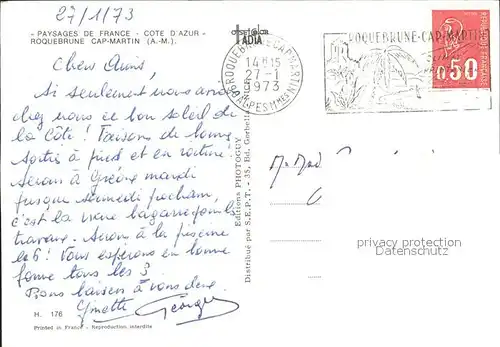 27/1/73
- PAYSAGES DE FRANCE - COTE D'AZUR -
ROQUEBRUNE CAP-MARTIN (A.-M.).
ADIA
ROQUEBRUNE-CAP-MARTIN
14H15
27-1
1973
ALPES MMES
ROQUEBRUNE-CAP-MARTIN
0,50
Chers Amis,
Si seulement vous aviez
chez vous ce bon soleil de
la Côte ! Faisons de bonnes
sorties à pied et en voiture.
Serons à mardi
jusque samedi prochain,
c'est la vraie pour les
travaux. Serons à la piscine
le 6 ! Vous espérons en bonne
forme tous les 3
Bons baisers à vous deux.
Ginette Georges
M. Mad
Editions PHOTOGUY
Distribué par S.E.P.T. - 35, Bd. Gorbella
privacy protection
Datenschutz
H. 176
Printed in France - Reproduction interdite